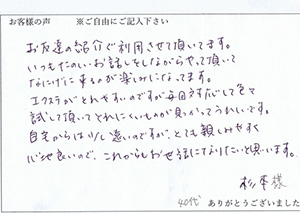 お客様の声 ※ご自由にご記入下さい
お友達の紹介で利用させて頂いてます。
いつもたのしいお話しをしながらやって頂いて
なにげに来るのが楽しみになってます。
エクステがとれやすいのですが毎回対応して色々
試して頂いてとれにくいものが見つかってうれしいです。
自宅からは少し遠いのですが、とても親しみやすく
心地良いので、これからもお世話になりたいと思います。
杉本様
40代 ありがとうございました